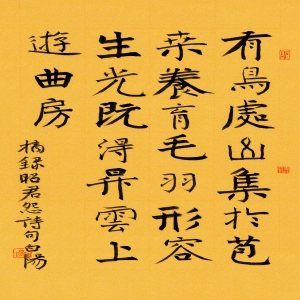 有鳥處山集於苞
桒養育毛羽形容
生光既淂昇雲上
遊曲房
摘録昭君怨詩句白陽